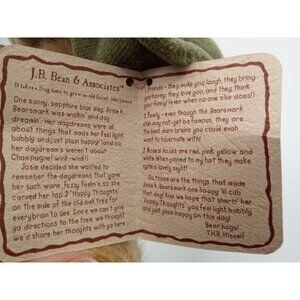 J.B. Bean & Associates™
It takes a long time to grow an old friend. John Leonard
One sunny, sapphire blue day, Josie K.
Bearsmark was walkin' and day
dreamin'. Her daydreams were all
about things that made her feel light,
bubbly and just plain happy! (and no,
her daydreams weren't about
Champagne! wink-wink!)
Josie decided she wanted to
remember the daydreams that gave
her such warm, fuzzy feelin's, so she
carved her top 3 "Happy Thoughts"
on the side of the old oak tree for
everybruin to see. Since we can't give
ya directions to the tree we thought
we'd share her thoughts with ya here:
1. Friends - they make you laugh, they bring
you honey, they love you, and they think
your funny! (even when no one else does!)
2. Family - even though the Bearsmark
clan may not-get-be famous, they are
the best darn bruins you could ever
want to hibernate with!
3. Roses! Josie ars red, pink, yellow and
white. When pinned to my hat they make
quite a lovely sight!
So, those are the things that made
Josie K. Bearsmark one happy lil' cub
that day! And we hope that sharin' her
"Happy Thoughts" you feel light, bubbly
and just plain happy on this day!
Bear hugs!
T.H.B. Hisself